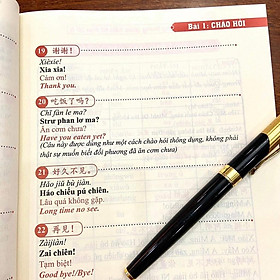 Bài 1: CHÀO HỎI
19 谢谢!
Xièxie!
Xia xỉa!
Cám ơn!
Thank you.
20 吃饭了吗?
Chī fàn le ma?
Strư phan lơ ma?
Ăn cơm chưa?
Have you eaten yet?
(Câu này được dùng như một cách chào hỏi thông dụng, không phải
thật sự muốn biết đối phương đã ăn cơm chưa)
21 好久不见。
Hǎo jiǔ bú jiàn.
Hảo chiểu pú chiên.
Lâu quá không gặp.
Long time no see.
22 再见!
Zàijiàn!
Zai chiên!
Tạm biệt!
Good bye!/Bye!